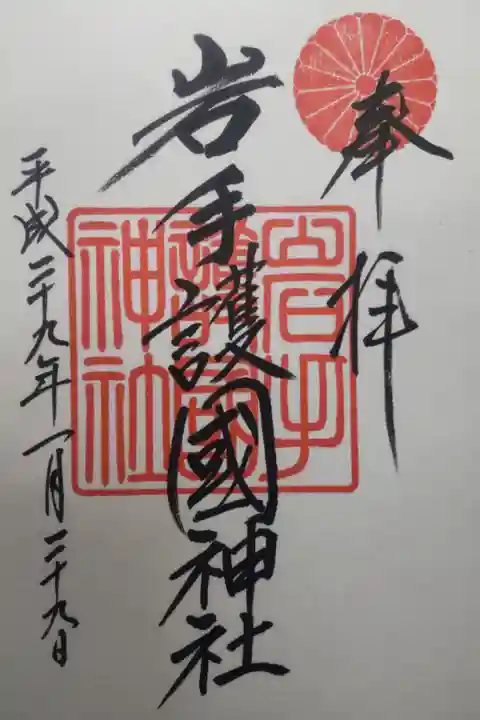 奉拝
岩手護國神社
岩手
護國
神社
平成二十九年一月二十九日